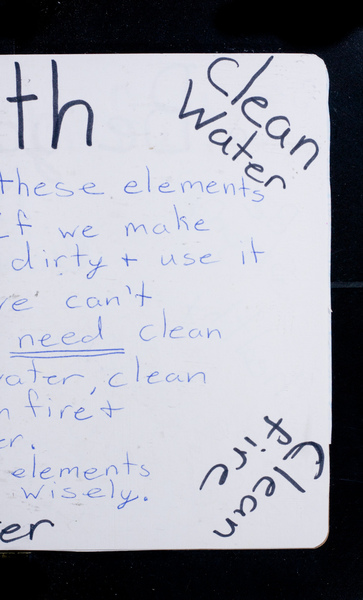 th
Clean
Water
these elements
If we make
dirty + use it
can't
need clean
water, clean
fire +
elements
wisely.
Clean
fire